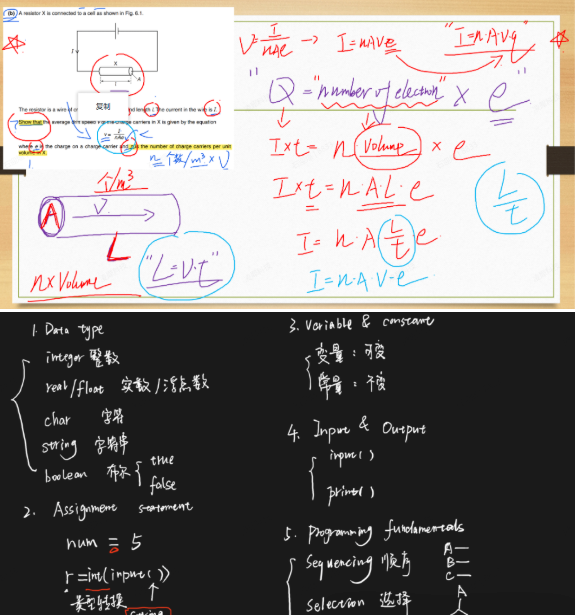 (b) A resistor X is connected to a cell as shown in Fig. 6.1.
I
X
A
l
The resistor is a wire of
and length l. The current in the wire is I.
复制
Show that the average drift speed v of the charge carriers in X is given by the equation
v = I / nAe
where e is the charge on a charge carrier and n is the number of charge carriers per unit
volume in X.
n 个数/m³ × V
V = I/nAe → I = nAve
"I = n·A·v·q"
"Q = "number of electron" × e"
I×t = n Volume × e
I×t = n·A·L·e
I = n·A L/t e
I = n·A·V·e
L/t
个/m³
A
V
L
"L = V·t"
n×Volume
1. Data type
integer 整数
real/float 实数/浮点数
char 字符
string 字符串
boolean 布尔
true
false
2. Assignment statement
num = 5
r = int(input())
类型转换
string
3. Variable & constant
变量：可变
常量：不变
4. Input & Output
input()
print()
5. Programming fundamentals
Sequencing 顺序
A
B
C
Selection 选择
A